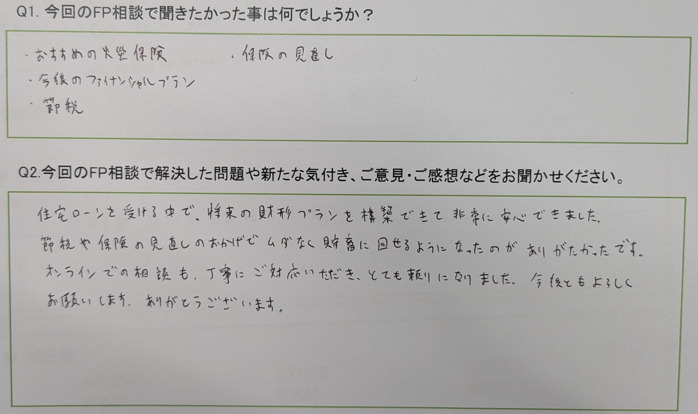 Q1. 今回のFP相談で聞きたかった事は何でしょうか？
・おすすめの火災保険 ・保険の見直し
・今後のファイナンシャルプラン
・節税
Q2.今回のFP相談で解決した問題や新たな気付き、ご意見・ご感想などをお聞かせください。
住宅ローンを受ける中で、将来の財形プランを構築できて非常に安心できました。
節税や保険の見直しのおかげでムダなく貯蓄に回せるようになったのがありがたかったです。
オンラインでの相談も、丁寧にご対応いただき、とても頼りになりました、今後ともよろしく
お願いします。ありがとうございます。